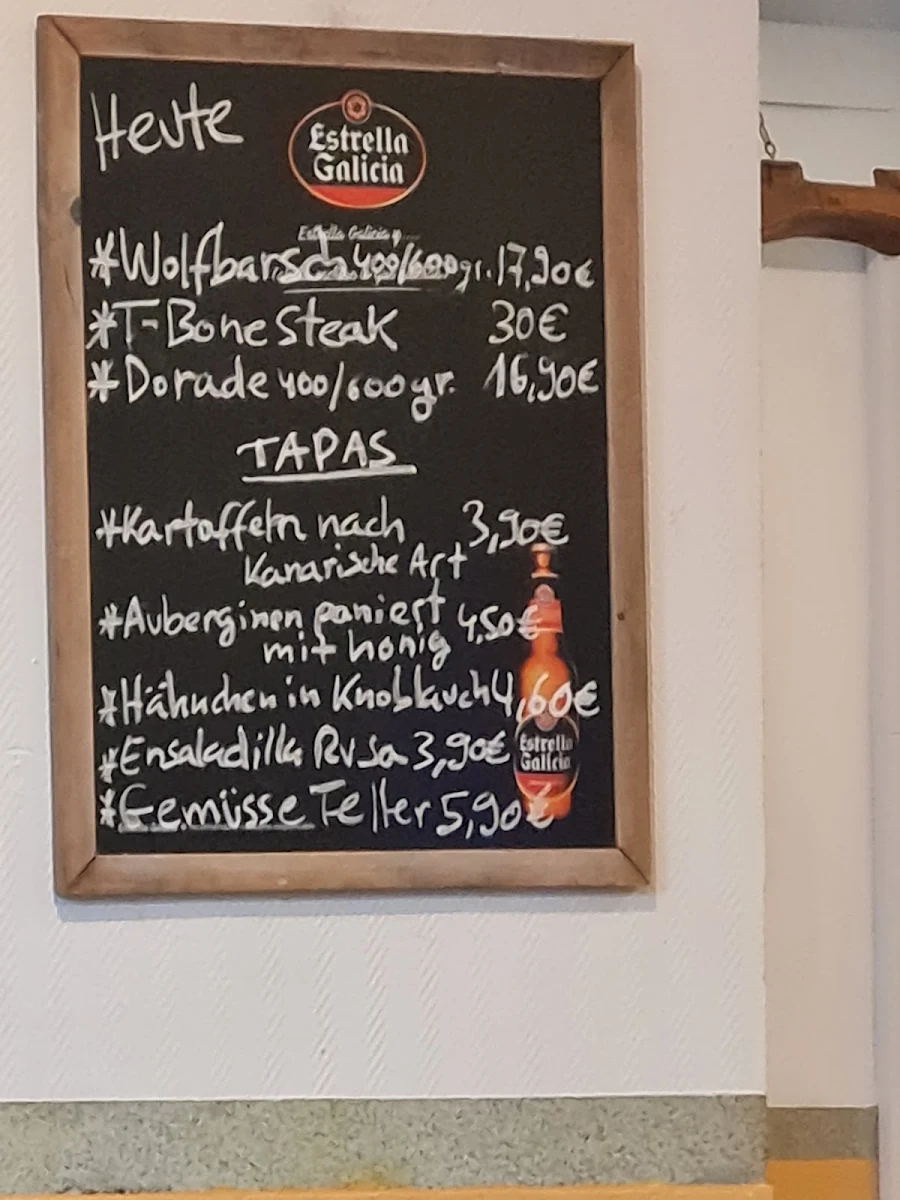 Heute
Estrella
Galicia
Estrella Galicia
*Wolfbarsch 400/600gr. 17,90€
*T-Bone Steak 30€
*Dorade 400/600gr. 16,90€
TAPAS
*Kartoffeln nach 3,90€
Kanarische Art
*Auberginen paniert 4,50€
mit honig
*Hähnchen in Knoblauch 4,60€
*Ensaladilla Rusa 3,90€
*Gemüsse Teller 5,90€
Estrella
Galicia